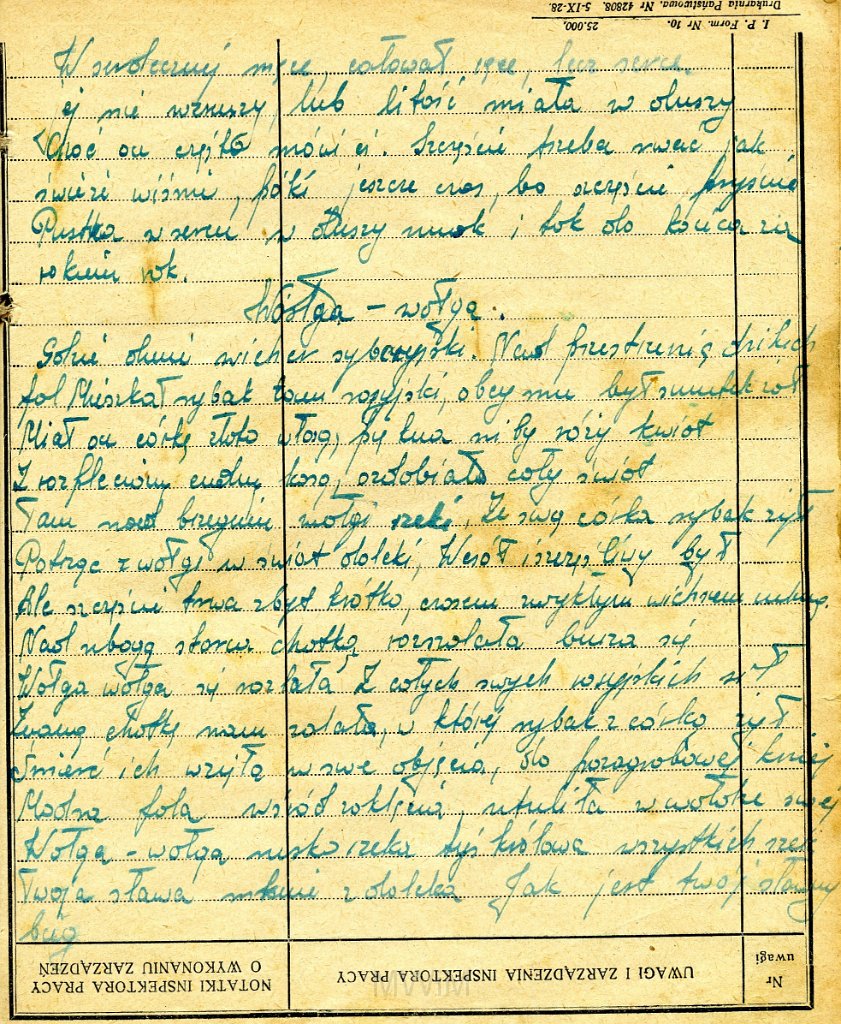 I. P. Form. Nr 10. 25.000.
Drukarnia Państwowa. Nr 42808. 5-IX-28.
W serdecznej męce, całował ręce, lecz serce
ej nie wzruszy, lub litość miała w duszy
Choć on często mówi ci. Szczęście trzeba rwać jak
świeże wiśnie, póki jeszcze czas, bo szczęście pryśnie
Pustka w sercu w duszy mrok i tak do końca za
rokiem rok.
Wołga – wołga.
Gdzie dmie wicher syberyjski. Nad przestrzenią dzikich
pol Mieszkał rybak tam rosyjski, obcy mu był smutek ból
Miał on córkę złoto włosą, piękna niby róży kwiat
Z rozplecioną cudną kosą, ozdobiała cały świat
Tam nad brzegiem wołgi rzeki, Ze swą córka rybak żył
Patrząc z wołgi w świat daleki, Wesół i szczęśliwy był
Ale szczęście trwa zbyt krótko, czasem zwykłym wichrem
Nad ubogą starą chatką rozszalała burza się
Wołga wołga się rozlała Z całych swych rosyjskich sił
chatkę nam zalała, w której rybak z córką żył
Śmierć ich wzięła w swe objęcia, do pozagrobowej kniej
Modra fala wśród zaklęcia, utuliła w swej
Wołga – wołga rzeka tyś królowa wszystkich rzek
Twoja sława mknie z daleka Jak jest twój sławny
bieg
Nr uwagi
UWAGI I ZARZĄDZENIA INSPEKTORA PRACY
NOTATKI INSPEKTORA PRACY
O WYKONANIU ZARZĄDZEŃ